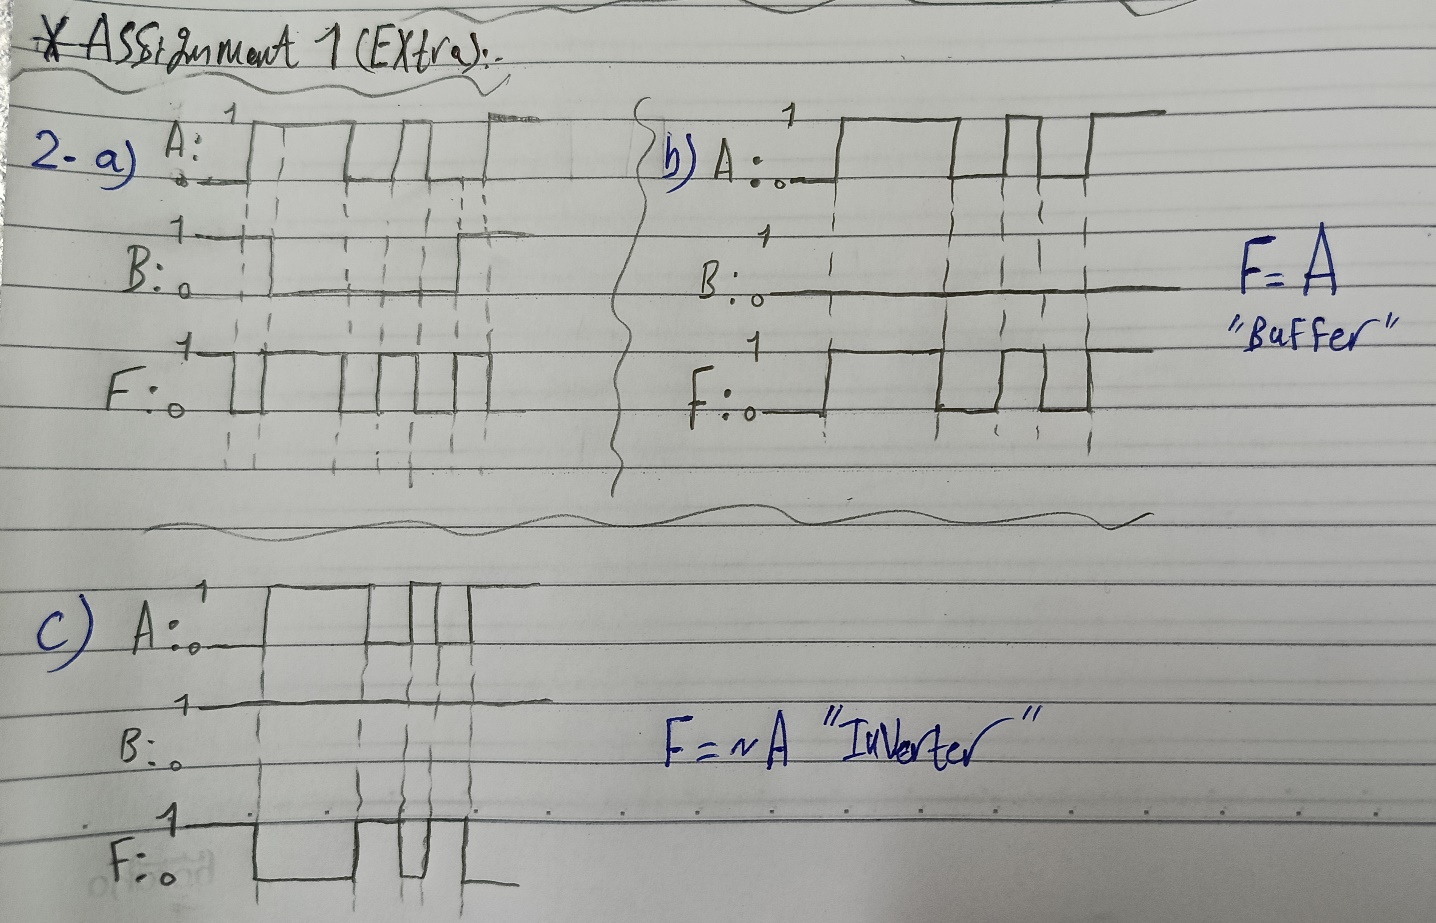 * Assignment 1 (Extra):-
2- a) A: 1 0
B: 1 0
F: 1 0
b) A: 1 0
B: 1 0
F: 1 0
F = A
"Buffer"
c) A: 1 0
B: 1 0
F: 1 0
F = ~A "Inverter"